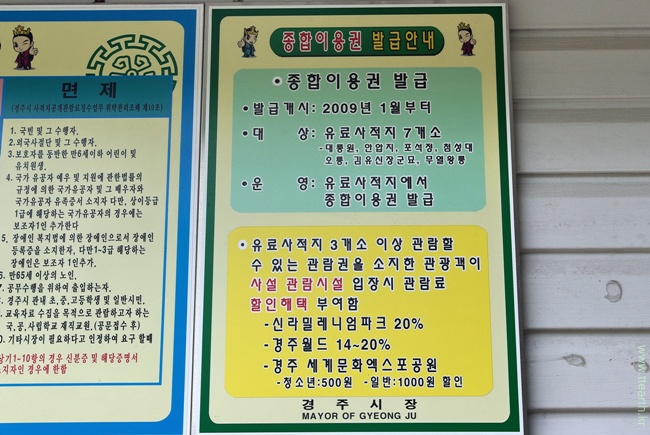 면 제
(경주시 사적지공개관람료징수업무 위탁관리조례 제10조)
1. 국빈 및 그 수행자.
2. 외국사절단 및 그 수행자.
3. 보호자를 동반한 만6세이하 어린이 및
유치원생.
4. 국가 유공자 예우 및 지원에 관한법률의
규정에 의한 국가유공자 및 그 배우자와
국가유공자 유족증서 소지자 다만, 상이등급
1급에 해당하는 국가유공자의 경우에는
보호자1인 추가한다
5. 장애인 복지법에 의한 장애인으로서 장애인
등록증을 소지한자. 다만1~3급 해당하는
장애인은 보호자 1인추가.
6. 만65세 이상의 노인.
7. 공무수행을 위하여 출입하는자.
8. 경주시 관내 초,중,고등학생 및 일반시민.
교육자료 수집을 목적으로 관람하고자 하는
국,공,사립학교 재직교원.(공문접수 후)
0. 기타시장이 필요하다고 인정하여 요구 할때
1~10항의 경우 신분증 및 해당증명서
소지자인 경우에 한함
종합이용권 발급안내
•종합이용권 발급
•발급개시: 2009년 1월부터
•대 상: 유료사적지 7개소
-대릉원, 안압지, 포석정, 첨성대
오릉, 김유신장군묘, 무열왕릉
•운 영: 유료사적지에서
종합이용권 발급
•유료사적지 3개소 이상 관람할
수 있는 관람권을 소지한 관광객이
사설 관람시설 입장시 관람료
할인혜택 부여함
-신라밀레니엄파크 20%
-경주월드 14~20%
-경주 세계문화엑스포공원
-청소년:500원 -일반:1000원 할인
경 주 시 장
MAYOR OF GYEONG JU